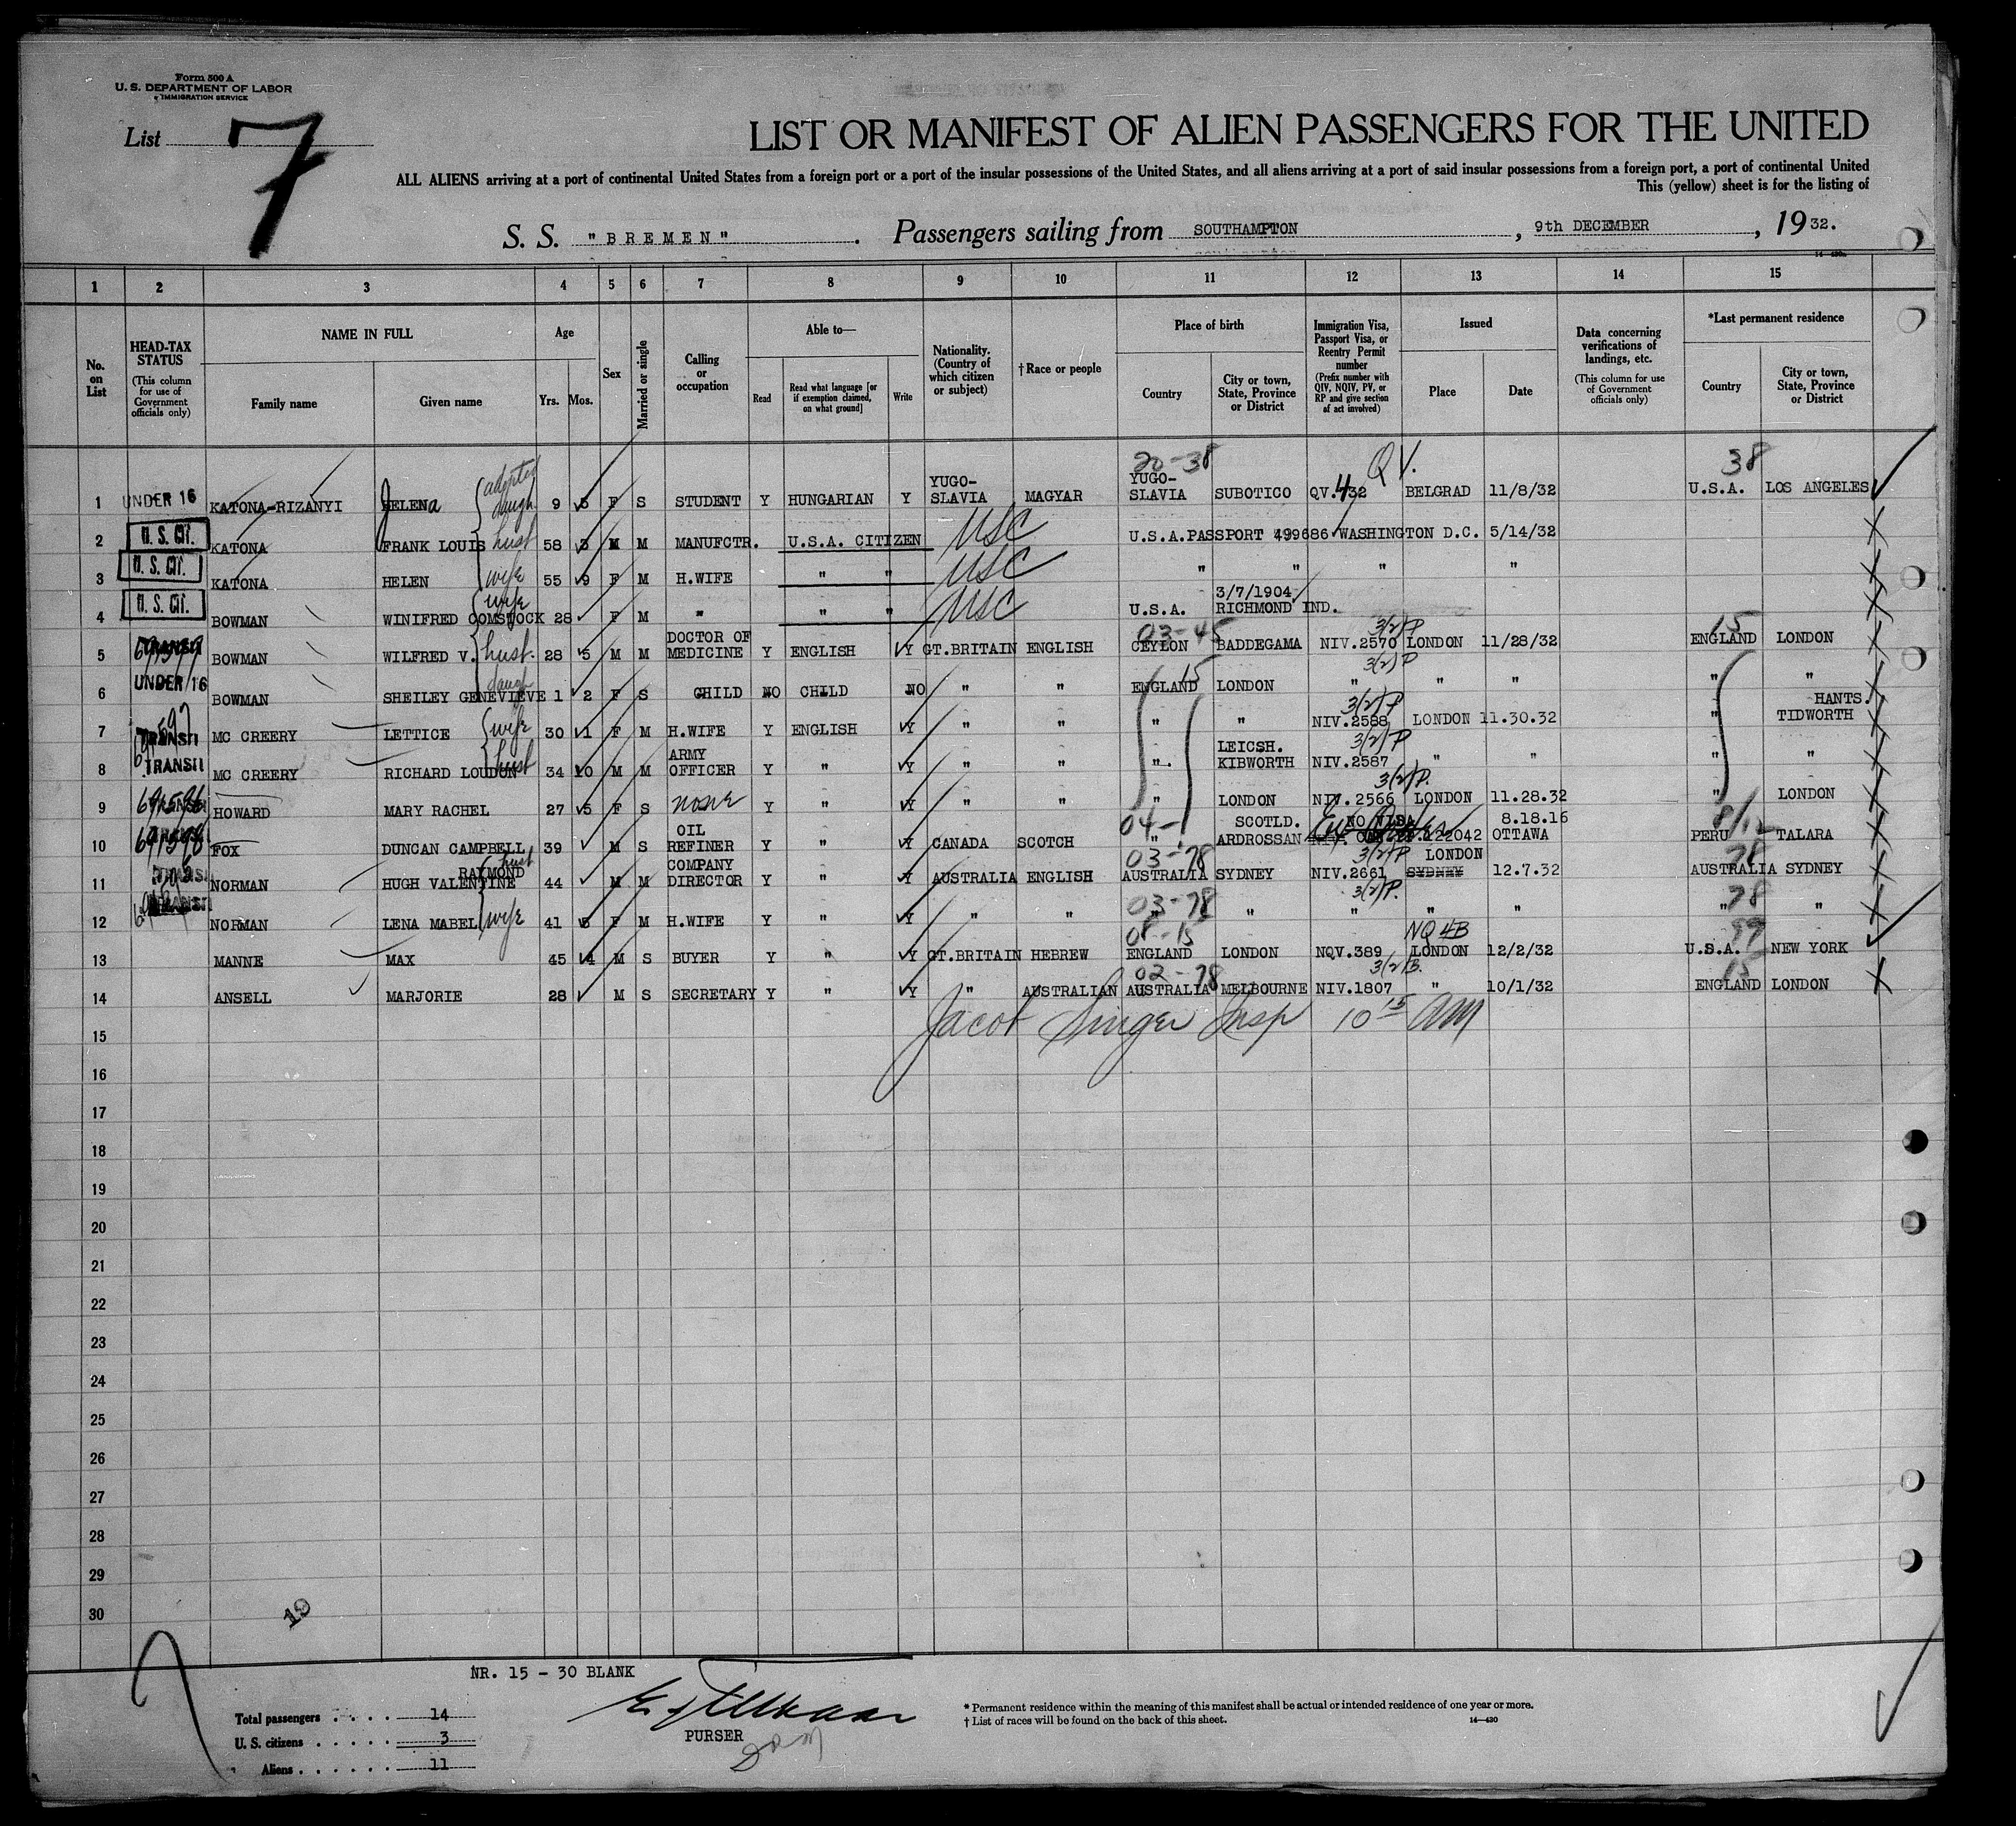 Form 500 A
U. S. DEPARTMENT OF LABOR
IMMIGRATION SERVICE
List 7
LIST OR MANIFEST OF ALIEN PASSENGERS FOR THE UNITED
ALL ALIENS arriving at a port of continental United States from a foreign port or a port of the insular possessions of the United States, and all aliens arriving at a port of said insular possessions from a foreign port, a port of continental United
This (yellow) sheet is for the listing of
S. S. "BREMEN". Passengers sailing from SOUTHAMPTON, 9th DECEMBER, 1932.
1 2 3 4 5 6 7 8 9 10 11 12 13 14 15
No. on List
HEAD-TAX STATUS (This column for use of Government officials only)
NAME IN FULL Family name Given name
Age Yrs. Mos.
Sex
Married or single
Calling or occupation
Able to— Read Read what language [or if exemption claimed, on what ground] Write
Nationality. (Country of which citizen or subject)
†Race or people
Place of birth Country City or town, State, Province or District
Immigration Visa, Passport Visa, or Reentry Permit number (Prefix number with QIV, NQIV, PV, or RP and give section of act involved)
Issued Place Date
Data concerning verifications of landings, etc. (This column for use of Government officials only)
*Last permanent residence Country City or town, State, Province or District
20-38 QV. 38
1 UNDER 16 KATONA-RIZANYI JELENA adopted daugh. 9 5 F S STUDENT Y HUNGARIAN Y YUGO-SLAVIA MAGYAR YUGO-SLAVIA SUBOTICO QV.432 BELGRAD 11/8/32 U.S.A. LOS ANGELES
2 U. S. Cit. KATONA FRANK LOUIS hust 58 3 M M MANUFCTR. U.S.A. CITIZEN USC U.S.A.PASSPORT 499686 WASHINGTON D.C. 5/14/32
3 U. S. Cit. KATONA HELEN wife 55 9 F M H.WIFE " " USC " " " "
4 U. S. Cit. BOWMAN WINIFRED COMSTOCK wife 28 F M " " " USC U.S.A. 3/7/1904 RICHMOND IND.
03-45 3(2)P 15
5 TRANSIT BOWMAN WILFRED V. hust. 28 5 M M DOCTOR OF MEDICINE Y ENGLISH Y GT.BRITAIN ENGLISH CEYLON BADDEGAMA NIV.2570 LONDON 11/28/32 ENGLAND LONDON
15 3(2)P
6 UNDER 16 BOWMAN SHEILEY GENEVIEVE daugh 1 2 F S CHILD NO CHILD NO " " ENGLAND LONDON " " " " "
3(2)P
7 TRANSIT MC CREERY LETTICE wife 30 1 F M H.WIFE Y ENGLISH Y " " " " NIV.2588 LONDON 11.30.32 " HANTS. TIDWORTH
3(2)P
8 TRANSIT MC CREERY RICHARD LOUDON hust 34 10 M M ARMY OFFICER Y " Y " " " LEICSH. KIBWORTH NIV.2587 " " " "
3(2)P.
9 HOWARD MARY RACHEL 27 5 F S none Y " Y " " " LONDON NIV.2566 LONDON 11.28.32 " LONDON
10 FOX DUNCAN CAMPBELL 39 M S OIL REFINER Y " Y CANADA SCOTCH 04-1 " SCOTLD. ARDROSSAN NO VISA 122042 OTTAWA 8.18.16 PERU TALARA
03-78 3(2)P 78
11 NORMAN HUGH VALENTINE RAYMOND hust 44 M M COMPANY DIRECTOR Y " Y AUSTRALIA ENGLISH AUSTRALIA SYDNEY NIV.2661 LONDON SYDNEY 12.7.32 AUSTRALIA SYDNEY
03-78 3(2)P. 78
12 NORMAN LENA MABEL wife 41 5 F M H.WIFE Y " Y " " " " " " " "
08-15 NQ 4B 99
13 MANNE MAX 45 4 M S BUYER Y " Y GT.BRITAIN HEBREW ENGLAND LONDON NQV.389 LONDON 12/2/32 U.S.A. NEW YORK
02-78 3(2)B. 15
14 ANSELL MARJORIE 28 M S SECRETARY Y " Y " AUSTRALIAN AUSTRALIA MELBOURNE NIV.1807 " 10/1/32 ENGLAND LONDON
15 Jacob Singer Insp 10 15 am
16
17
18
19
20
21
22
23
24
25
26
27
28
29
30
19
NR. 15 - 30 BLANK
Total passengers . . . . 14
U. S. citizens . . . . . 3
Aliens . . . . . . 11
PURSER
* Permanent residence within the meaning of this manifest shall be actual or intended residence of one year or more.
† List of races will be found on the back of this sheet.
14—430